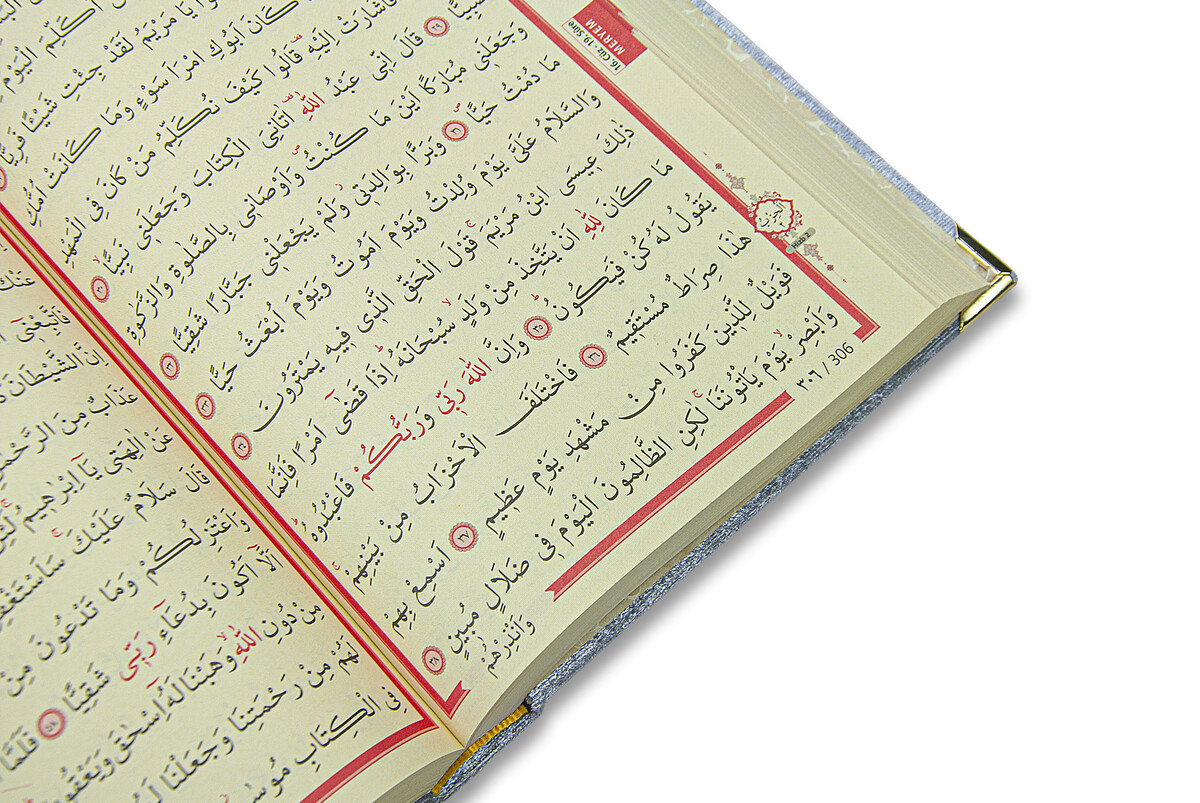 MERYEM
16. Cüz - 19. Sûre
يَا مَرْيَمُ لَقَدْ جِئْتِ شَيْـًٔا فَرِيًّا
كَانَ اَبُوكِ امْرَاَ سَوْءٍ وَمَا كَانَتْ اُمُّكِ
فَاَشَارَتْ اِلَيْهِ قَالُوا كَيْفَ نُكَلِّمُ مَنْ كَانَ فِى الْمَهْدِ
صَبِيًّا ﴿٢٩﴾ قَالَ اِنّٖى عَبْدُ اللّٰهِ اٰتَانِىَ الْكِتَابَ وَجَعَلَنٖى نَبِيًّا ﴿٣٠﴾
وَجَعَلَنٖى مُبَارَكًا اَيْنَ مَا كُنْتُ وَاَوْصَانٖى بِالصَّلٰوةِ وَالزَّكٰوةِ
مَا دُمْتُ حَيًّا ﴿٣١﴾ وَبَرًّا بِوَالِدَتٖى وَلَمْ يَجْعَلْنٖى جَبَّارًا شَقِيًّا ﴿٣٢﴾
وَالسَّلَامُ عَلَىَّ يَوْمَ وُلِدْتُ وَيَوْمَ اَمُوتُ وَيَوْمَ اُبْعَثُ حَيًّا ﴿٣٣﴾
ذٰلِكَ عٖيسَى ابْنُ مَرْيَمَ قَوْلَ الْحَقِّ الَّذٖى فٖيهِ يَمْتَرُونَ ﴿٣٤﴾
مَا كَانَ لِلّٰهِ اَنْ يَتَّخِذَ مِنْ وَلَدٍ سُبْحَانَهُ اِذَا قَضٰٓى اَمْرًا فَاِنَّمَا
يَقُولُ لَهُ كُنْ فَيَكُونُ ﴿٣٥﴾ وَاِنَّ اللّٰهَ رَبّٖى وَرَبُّكُمْ فَاعْبُدُوهُ
هٰذَا صِرَاطٌ مُسْتَقٖيمٌ ﴿٣٦﴾ فَاخْتَلَفَ الْاَحْزَابُ مِنْ بَيْنِهِمْ
فَوَيْلٌ لِلَّذٖينَ كَفَرُوا مِنْ مَشْهَدِ يَوْمٍ عَظٖيمٍ ﴿٣٧﴾ اَسْمِعْ بِهِمْ
وَاَبْصِرْ يَوْمَ يَاْتُونَنَا لٰكِنِ الظَّالِمُونَ الْيَوْمَ فٖى ضَلَالٍ مُبٖينٍ ﴿٣٨﴾
وَاَنْذِرْهُمْ
الحزب
Hizb 2
٣٠٦ / 306
فَاتَّبِعْنٖٓى
اِنَّ الشَّيْطَانَ
عَذَابٌ مِنَ الرَّحْمٰنِ
عَنْ اٰلِهَتٖى يَٓا اِبْرٰهٖيمُ
قَالَ سَلَامٌ عَلَيْكَ سَاَسْتَغْفِرُ
وَاَعْتَزِلُكُمْ وَمَا تَدْعُونَ مِنْ
اَلَّٓا اَكُونَ بِدُعَٓاءِ رَبّٖى شَقِيًّا ﴿٤٨﴾ فَلَمَّا
مِنْ دُونِ اللّٰهِ وَهَبْنَا لَهُٓ اِسْحٰقَ وَيَعْقُوبَ
لَهُمْ مِنْ رَحْمَتِنَا وَجَعَلْنَا
فِى الْكِتَابِ مُوسٰٓى